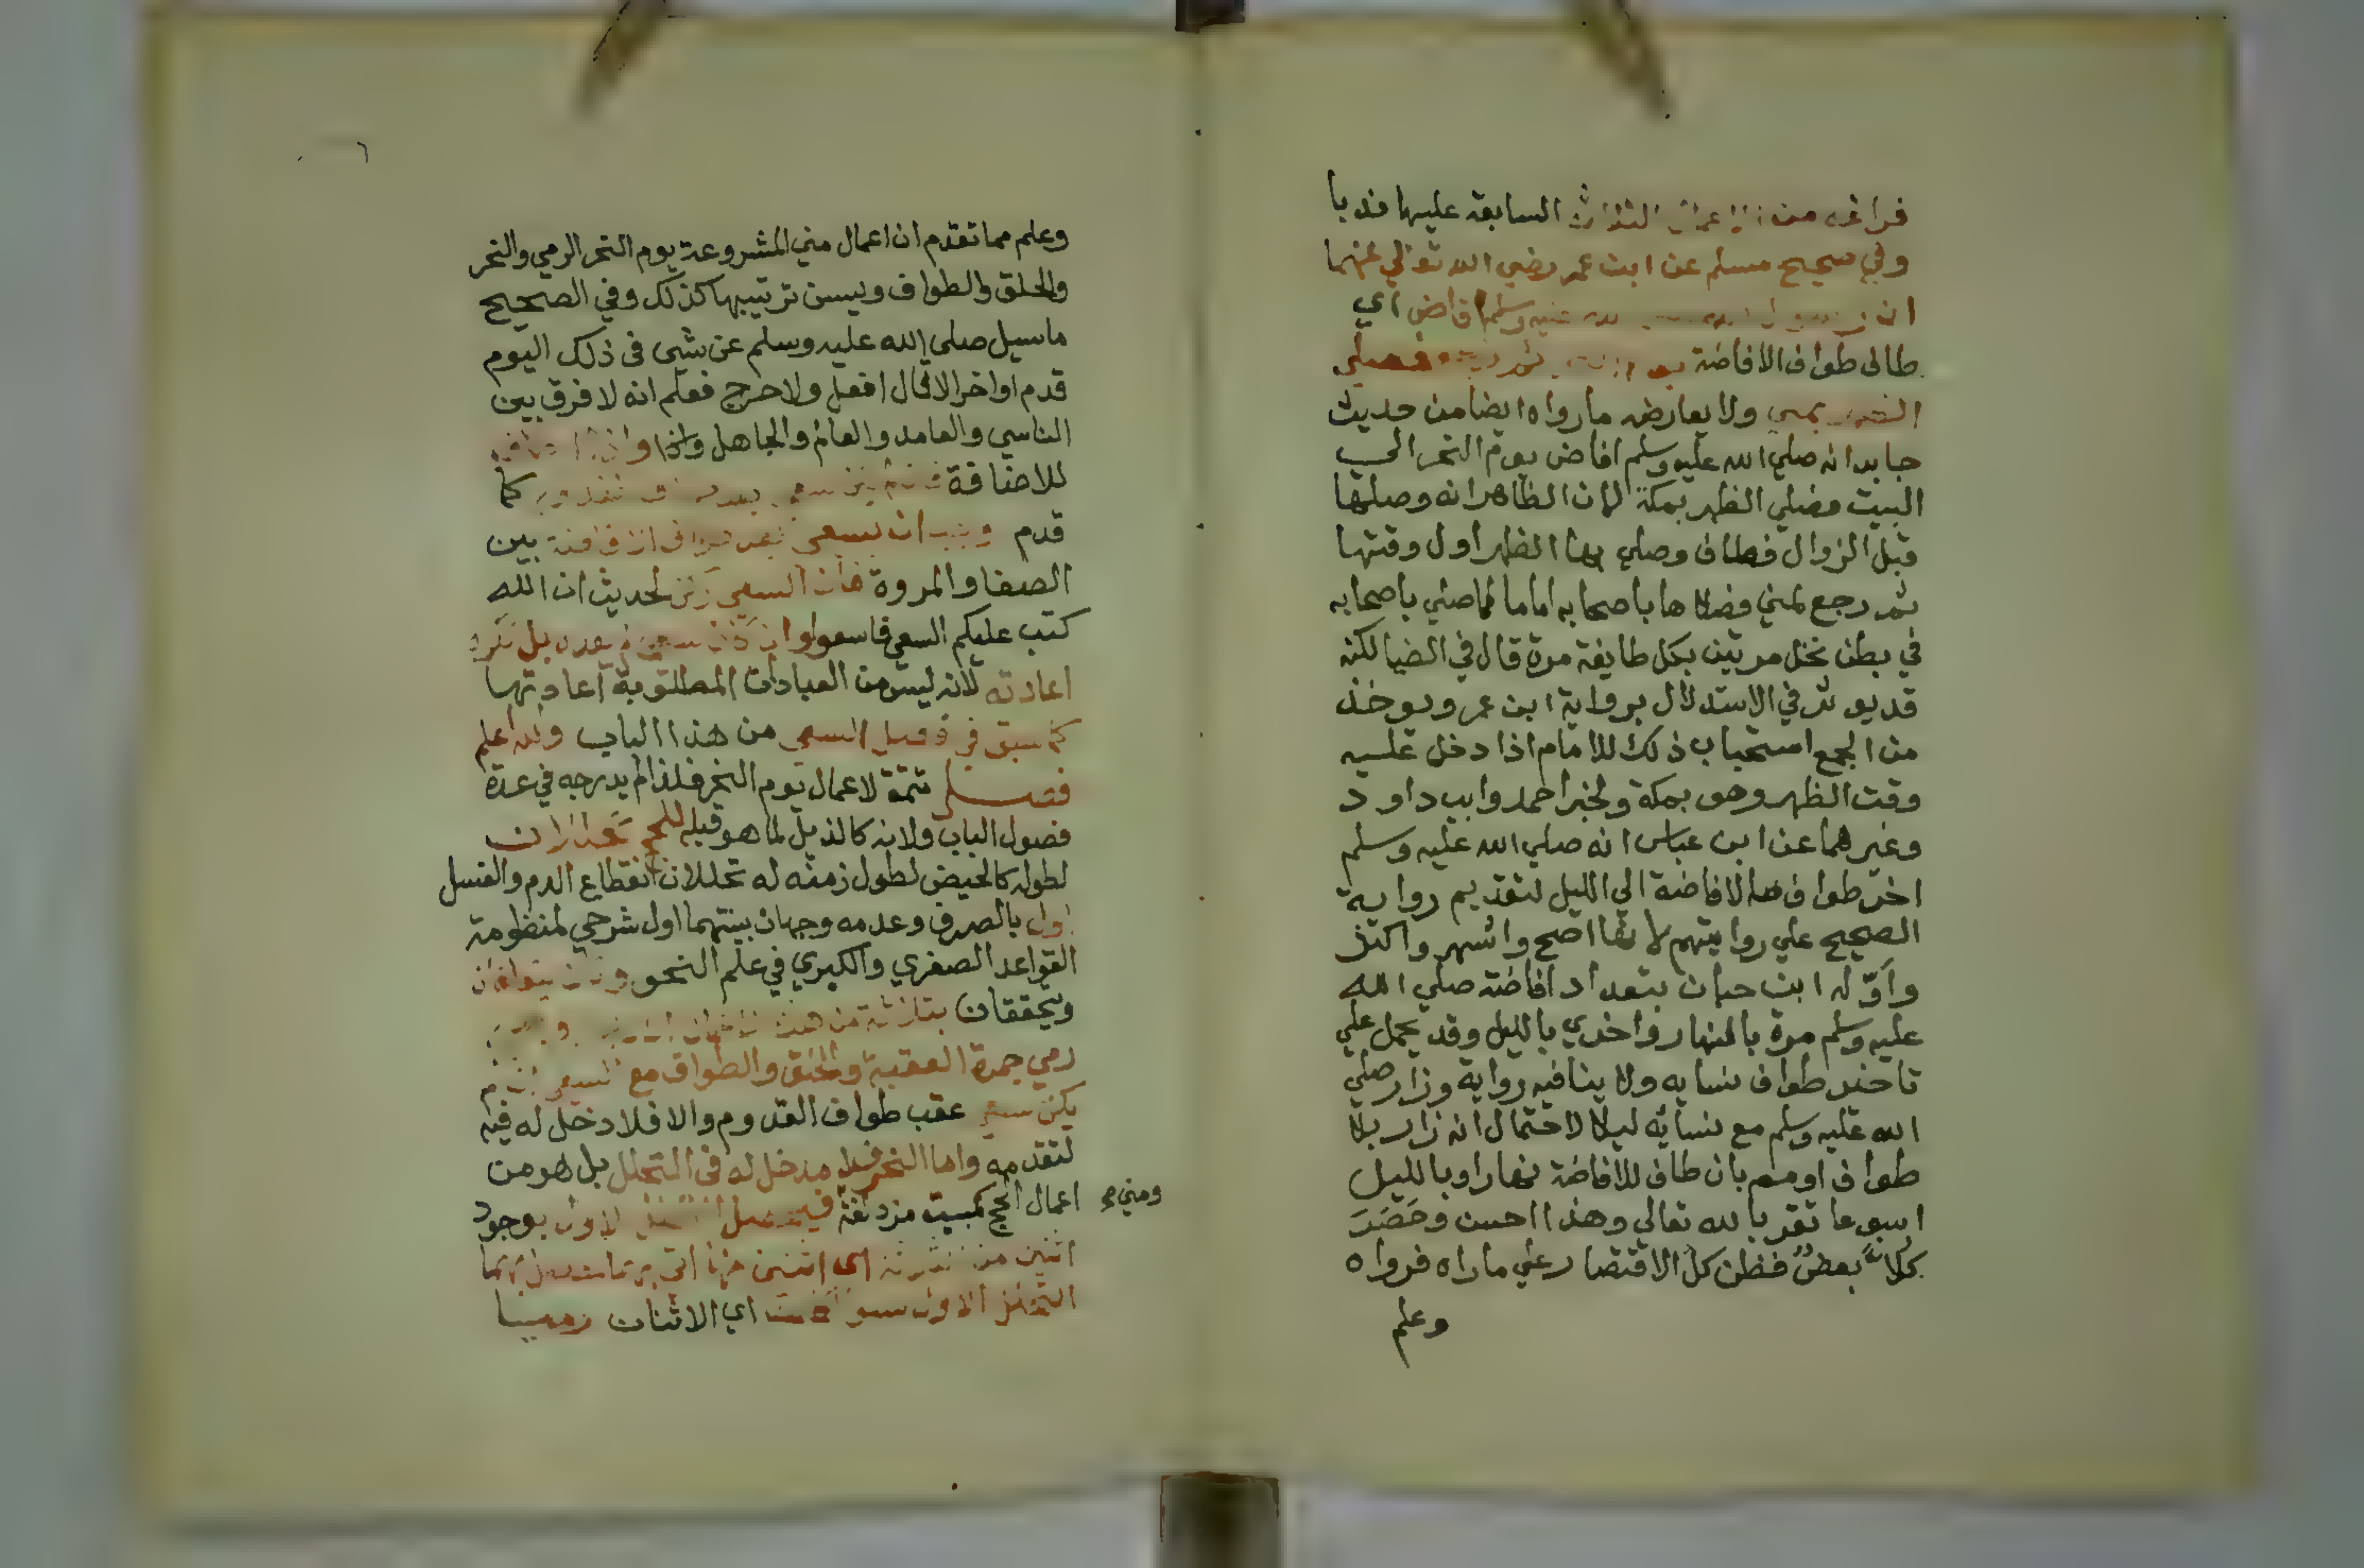 فراغه من الاعمال الثلاث السابقة عليها فدبا
وفي صحيح مسلم عن ابن عمر رضي الله تعالي عنهما
ان رسول الله صلى الله عليه وسلم افاض اي
طاف طواف الافاضة يوم ثم رجع فصلي
الظهر بمني ولا يعارضه مارواه ايضا من حديث
جابر انه صلي الله عليه وسلم افاض يوم النحر الي
البيت فصلي الظهر بمكة لان الظاهر انه وصلها
قبل الزوال فطاف وصلي بها الظهر اول وقتها
ثم رجع لمني فصلاها باصحابه اماما كما صلي باصحابه
في بطن نخل مرتين بكل طايفة مرة قال في الضيا لكنه
قد يوثر في الاستدلال برواية ابن عمر ويوخذ
من الجمع استحباب ذلك للامام اذا دخل عليه
وقت الظهر وهو بمكة ولخبر احمد وابي داود
وغيرهما عن ابن عباس انه صلي الله عليه وسلم
اخر طواف الافاضة الي الليل لتقديم رواية
الصحيح علي روايتهم لانها اصح واشهر واكثر
واوّله ابن حبان بتعداد افاضته صلي الله
عليه وسلم مرة بالنهار واخري بالليل وقد يحمل علي
تاخير طواف نسايه ولا ينافيه رواية وزار صلي
الله عليه وسلم مع نسائه ليلا لاحتمال انه زار بلا
طواف اومهم بان طاف للافاضة نهارا وبالليل
اسبوعا تقربا لله تعالي وهذا احسن وحَضَرَ
كلاً بعضٌ فظن كل الاقتصار علي ماراه فرواه
وعلم
٦
وعلم مما تقدم ان اعمال مني المشروعة يوم النحر الرمي والنحر
والحلق والطواف ويسن ترتيبها كذلك وفي الصحيح
ماسيل صلي الله عليه وسلم عن شي في ذلك اليوم
قدم او اخر الا قال افعل ولا حرج فعلم انه لا فرق بين
الناسي والعامد والعالم والجاهل واذا طاف
للاضافة فان لم يكن سعي بعد طواف قدوم كما
قدم وجب ان يسعي بعد طواف الافاضة بين
الصفا والمروة فان السعي ركن لحديث ان الله
كتب عليكم السعي فاسعوا وان كان سعي لم يعده بل تكره
اعادته لانه ليس من العبادات المطلوبة اعادتها
كما سبق في فصل السعي من هذا الباب والله اعلم
فصل تتمة لاعمال يوم النحر فلذا لم يدرجه في عدة
فصول الباب ولانه كالذيل لما هو قبله للحج تحللان
لطوله كالحيض لطول زمنه له تحللان انقطاع الدم والغسل
اول بالصرف وعدمه وجهان بينتهما اول شرحي لمنظومة
القواعد الصغري والكبري في علم النحو وثان يتوافقان
ويتحققان بثلاثة من هذه
رمي جمرة العقبة والحلق والطواف مع السعي ان لم
يكن سعي عقب طواف القدوم والا فلا دخل له فيه
لتقدمه واما النحر فلا مدخل له في التحلل بل هو من
اعمال الحج كمبيت مزدلفة ومني صح فيحصل التحلل الاول بوجود
اثنين من ثلاثة اي اثنين منها اتي بهما
التحلل الاول سوا كانت اي الاثنان رميا